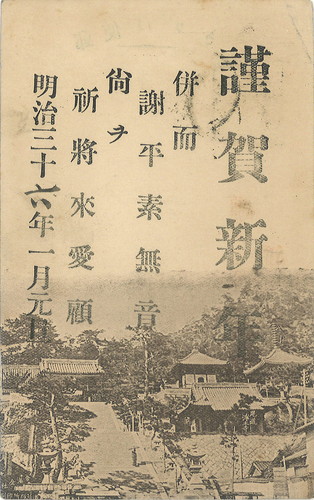 謹賀新年
併而
謝平素無音
尚ヲ
祈將來愛顧
明治三十六年一月元日